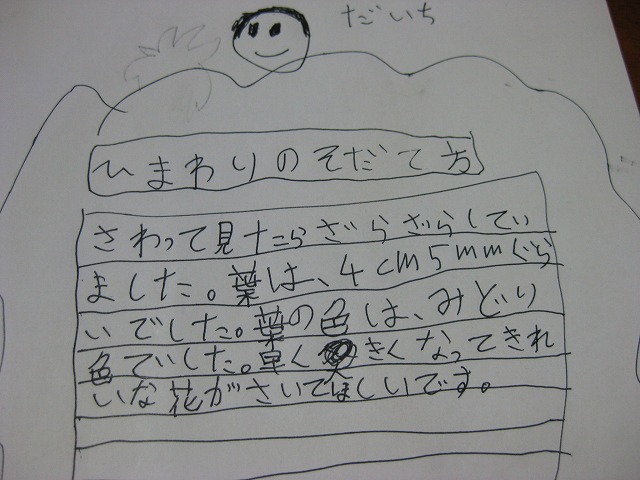 だいち
ひまわりのそだて方
さわって見たらざらざらしてい
ました。葉は、4cm5mmぐら
いでした。葉の色は、みどり
色でした。早く大きくなってきれ
いな花がさいてほしいです。